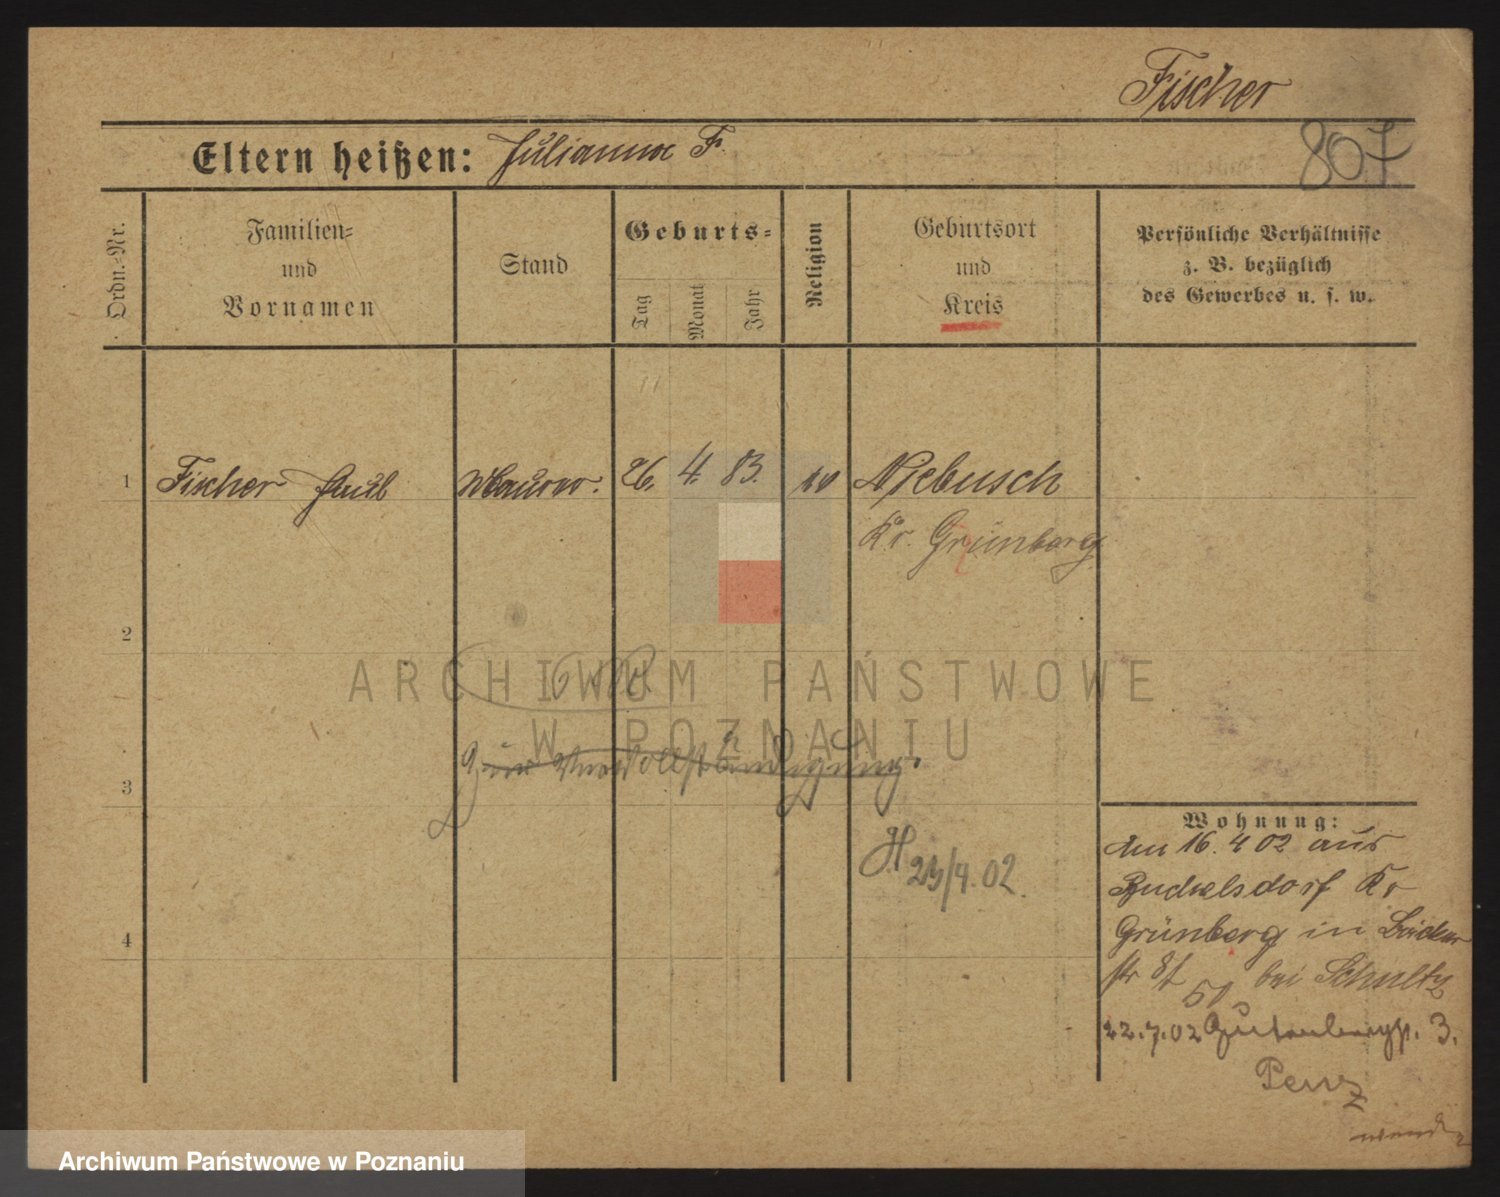 Fischer
807
Eltern heißen: Julianna F.
Ordn.-Nr.
Familien-
und
Vornamen
Stand
Geburts-
Tag
Monat
Jahr
Religion
Geburtsort
und
Kreis
Persönliche Verhältnisse
z. B. bezüglich
des Gewerbes u. s. w.
1 Fischer Paul Maurer. 26. 4. 83. Niebusch
Kr. Grünberg
2
ARCHIWUM PAŃSTWOWE
W POZNANIU
zur Vervollständigung.
3
H 23/4.02.
Wohnung:
Am 16.4 02 aus
Buchelsdorf Kr
Grünberg in Bäcker
str bei Schultz
22.7.02 Gutenbergs. 3.
Penz
4
wend
Archiwum Państwowe w Poznaniu